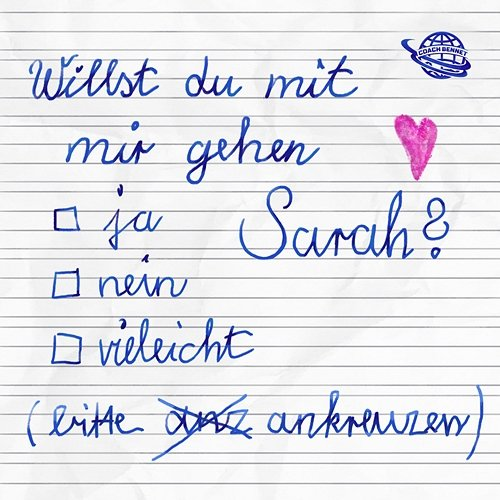 COACH BENNET
Willst du mit
mir gehen
Sarah?
ja
nein
vieleicht
(bitte anz ankreuzen)